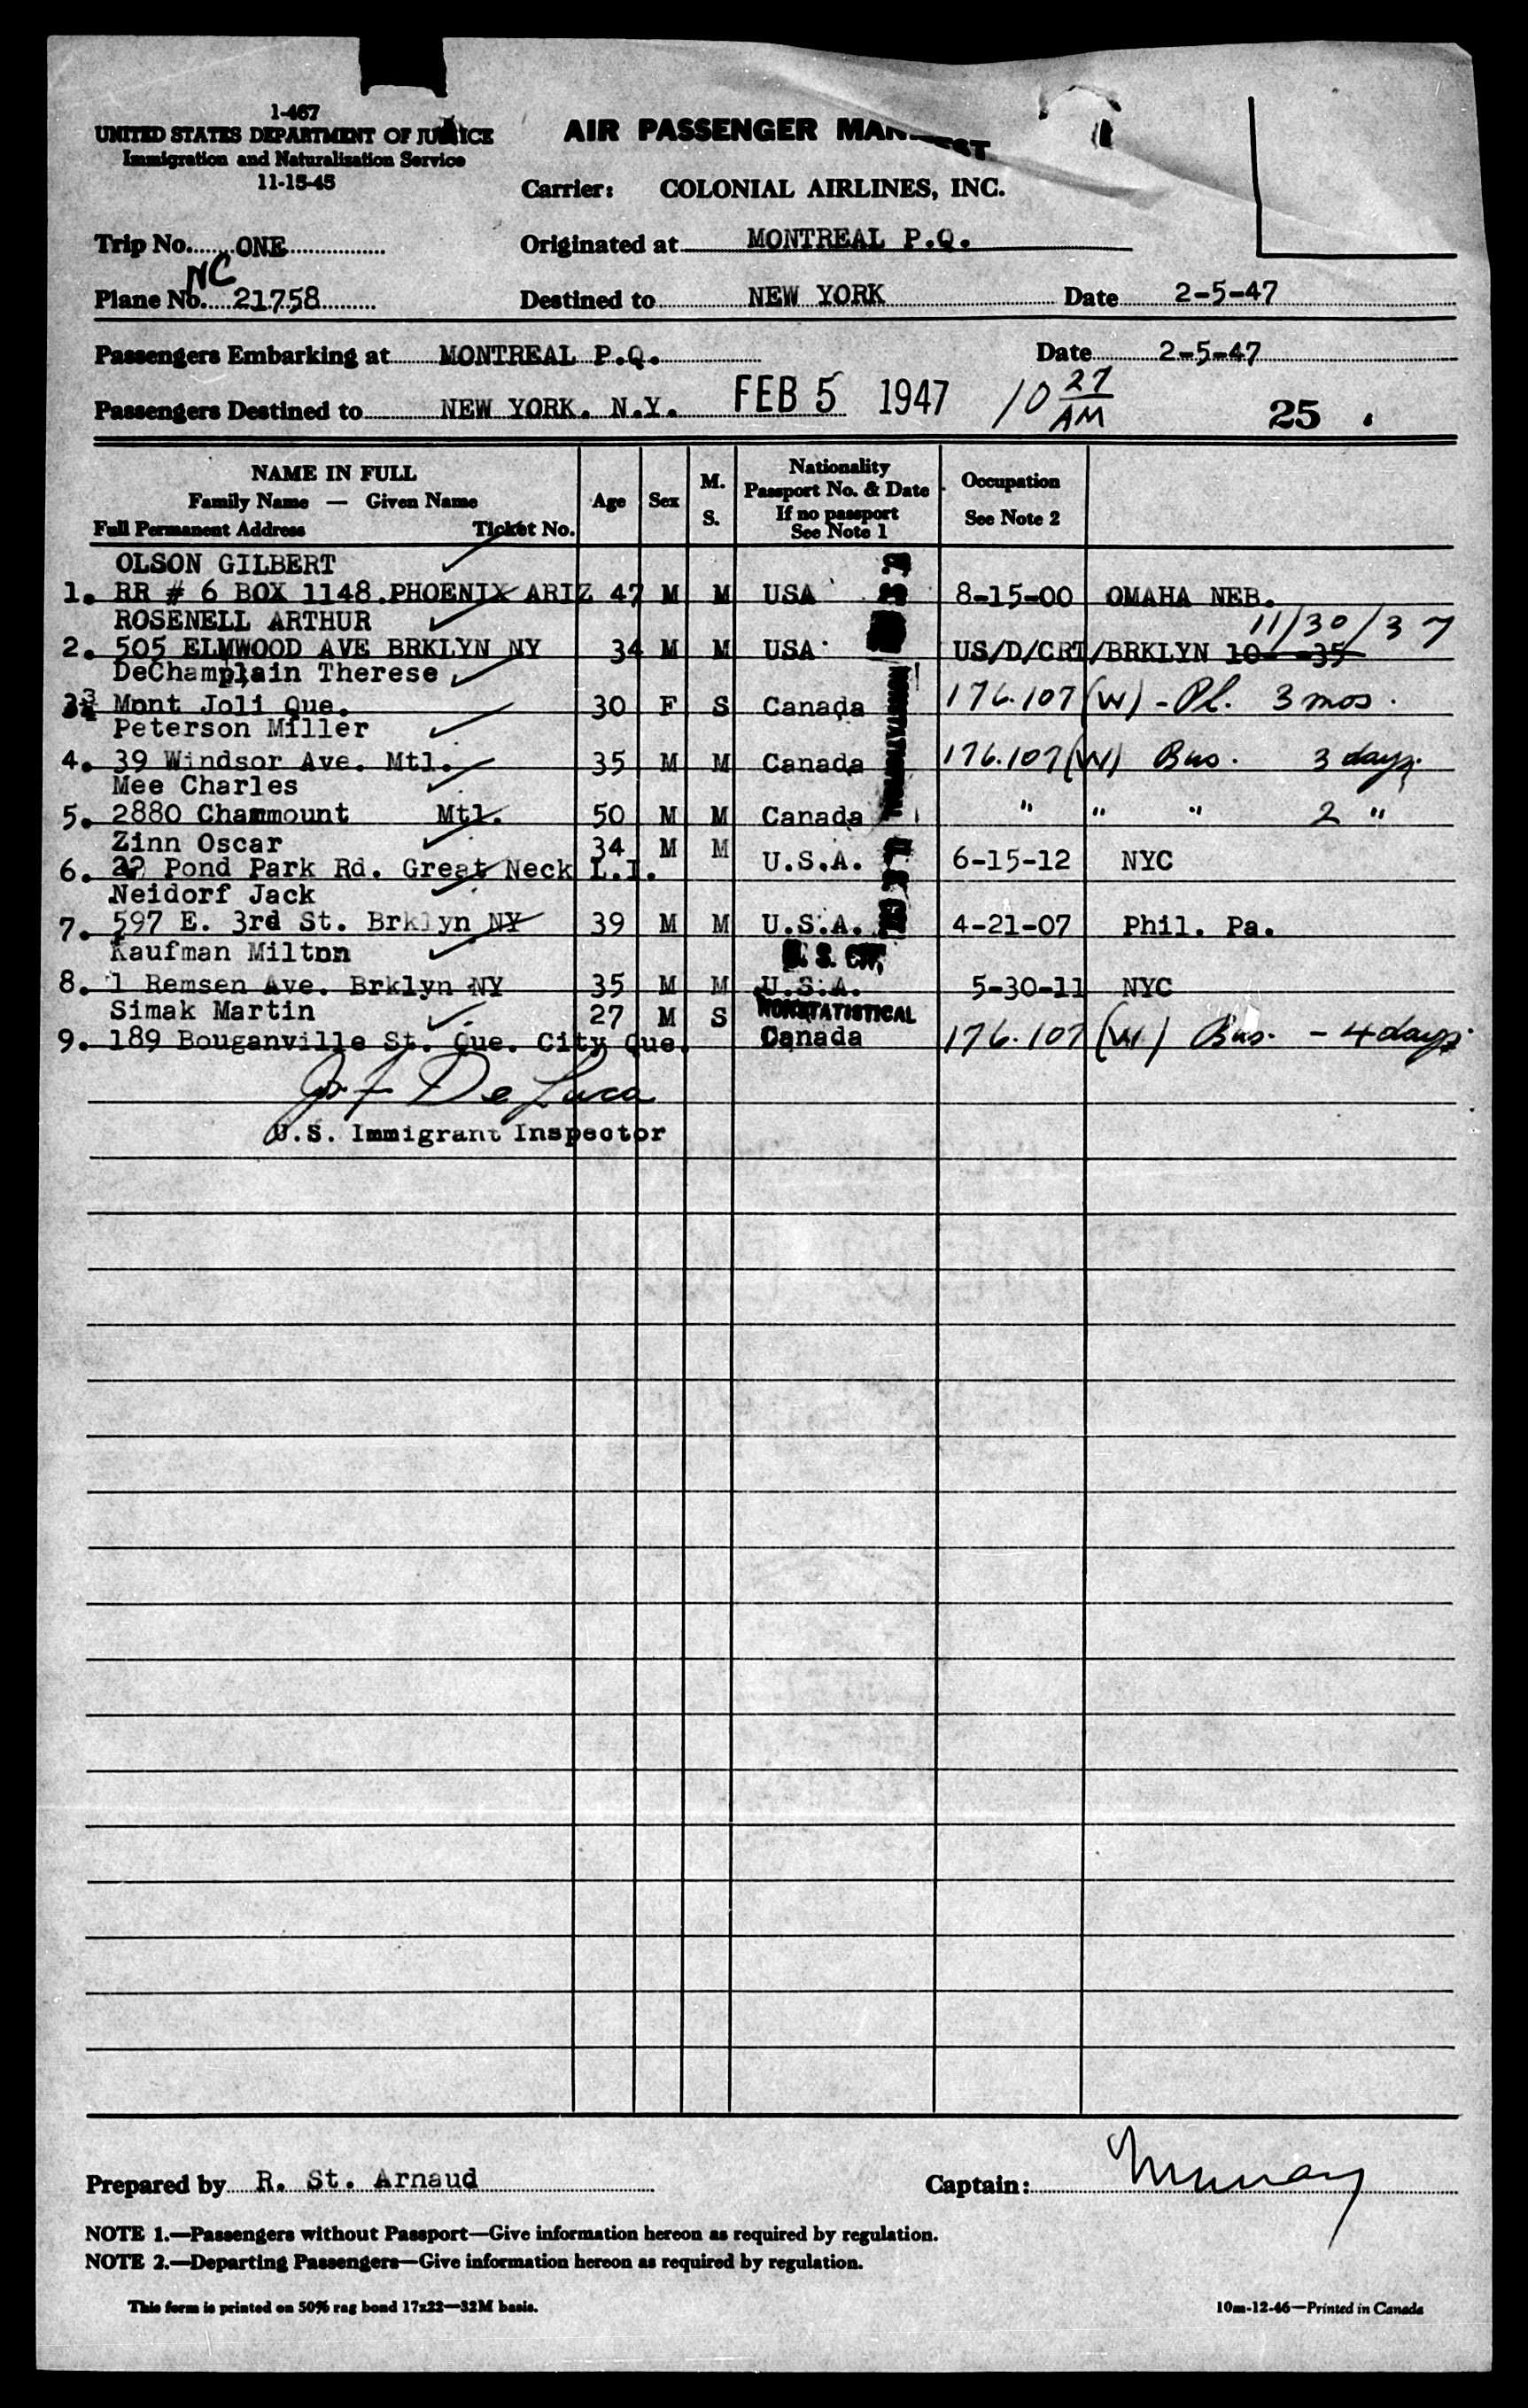 1-467
UNITED STATES DEPARTMENT OF JUSTICE
Immigration and Naturalization Service
11-15-45
AIR PASSENGER MANIFEST
Carrier: COLONIAL AIRLINES, INC.
Trip No. ONE
Originated at MONTREAL P.Q.
NC
Plane No. 21758
Destined to NEW YORK Date 2-5-47
Passengers Embarking at MONTREAL P.Q. Date 2-5-47
Passengers Destined to NEW YORK. N.Y. FEB 5 1947 10 27 AM 25
NAME IN FULL
Family Name — Given Name
Full Permanent Address Ticket No.
Age
Sex
M.
S.
Nationality
Passport No. & Date
If no passport
See Note 1
Occupation
See Note 2
OLSON GILBERT
1. RR # 6 BOX 1148.PHOENIX ARIZ 47 M M USA 8-15-00 OMAHA NEB.
ROSENELL ARTHUR 11/30/37
2. 505 ELMWOOD AVE BRKLYN NY 34 M M USA US/D/CRT/BRKLYN 10- -35
DeChamplain Therese
3 Mont Joli Que. 30 F S Canada 176.107 (W) - Pl. 3 mos.
Peterson Miller
4. 39 Windsor Ave. Mtl. 35 M M Canada 176.107 (W) Bus. 3 days.
Mee Charles
5. 2880 Chammount Mtl. 50 M M Canada " " " 2 "
NONSTATISTICAL
Zinn Oscar 34 M M
6. 22 Pond Park Rd. Great Neck L.I. U.S.A. 6-15-12 NYC
Neidorf Jack
7. 597 E. 3rd St. Brklyn NY 39 M M U.S.A. 4-21-07 Phil. Pa.
Kaufman Milton U. S. CIT.
8. 1 Remsen Ave. Brklyn NY 35 M M U.S.A. 5-30-11 NYC
Simak Martin 27 M S NONSTATISTICAL
9. 189 Bouganville St. Que. City Que. Canada 176.107 (W) Bus. - 4 days.
De Luca
U.S. Immigrant Inspector
Prepared by R. St. Arnaud
Captain: Murray
NOTE 1.—Passengers without Passport—Give information hereon as required by regulation.
NOTE 2.—Departing Passengers—Give information hereon as required by regulation.
This form is printed on 50% rag bond 17x22—32M basis.
10m-12-46—Printed in Canada